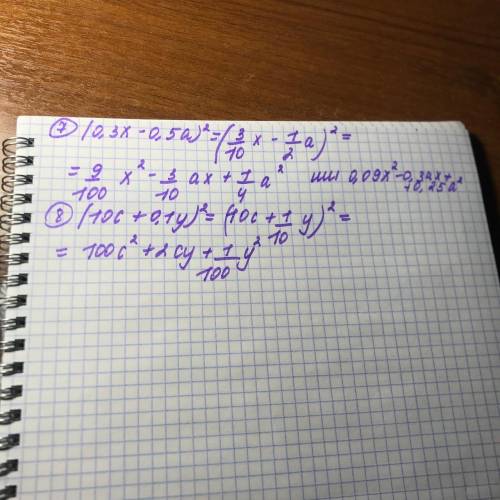 ⑦ (0,3x - 0,5a)² = (3/10 x - 1/2 a)² =
= 9/100 x² - 3/10 ax + 1/4 a² или 0,09x² - 0,3ax + 0,25a²
⑧ (10c + 0,1y)² = (10c + 1/10 y)² =
= 100c² + 2cy + 1/100 y²